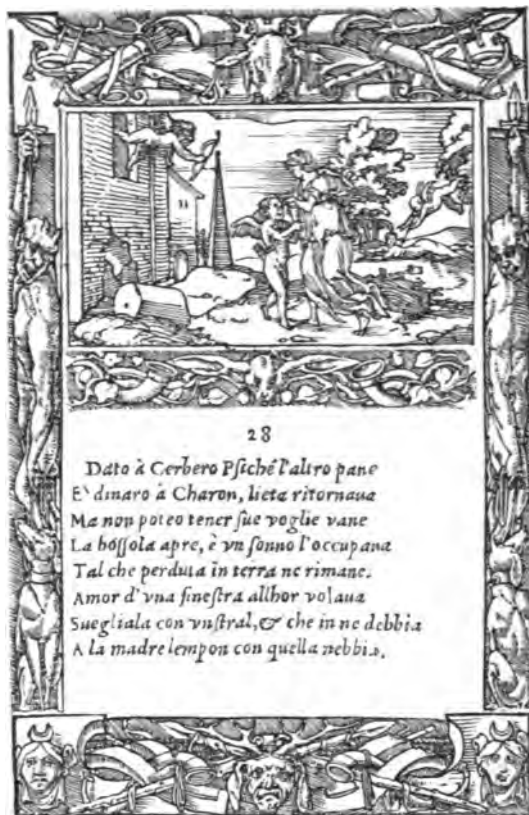 28
Dato à Cerbero Psiché l'altro pane
E' dinaro à Charon, lieta ritornaua
Ma non poteo tener sue voglie vane
La bossola apre, è vn sonno l'occupaua
Tal che perduta in terra ne rimane.
Amor d'vna finestra allhor volaua
Suegliala con vnstral, & che in ne debbia
A la madre lempon con quella nebbia.